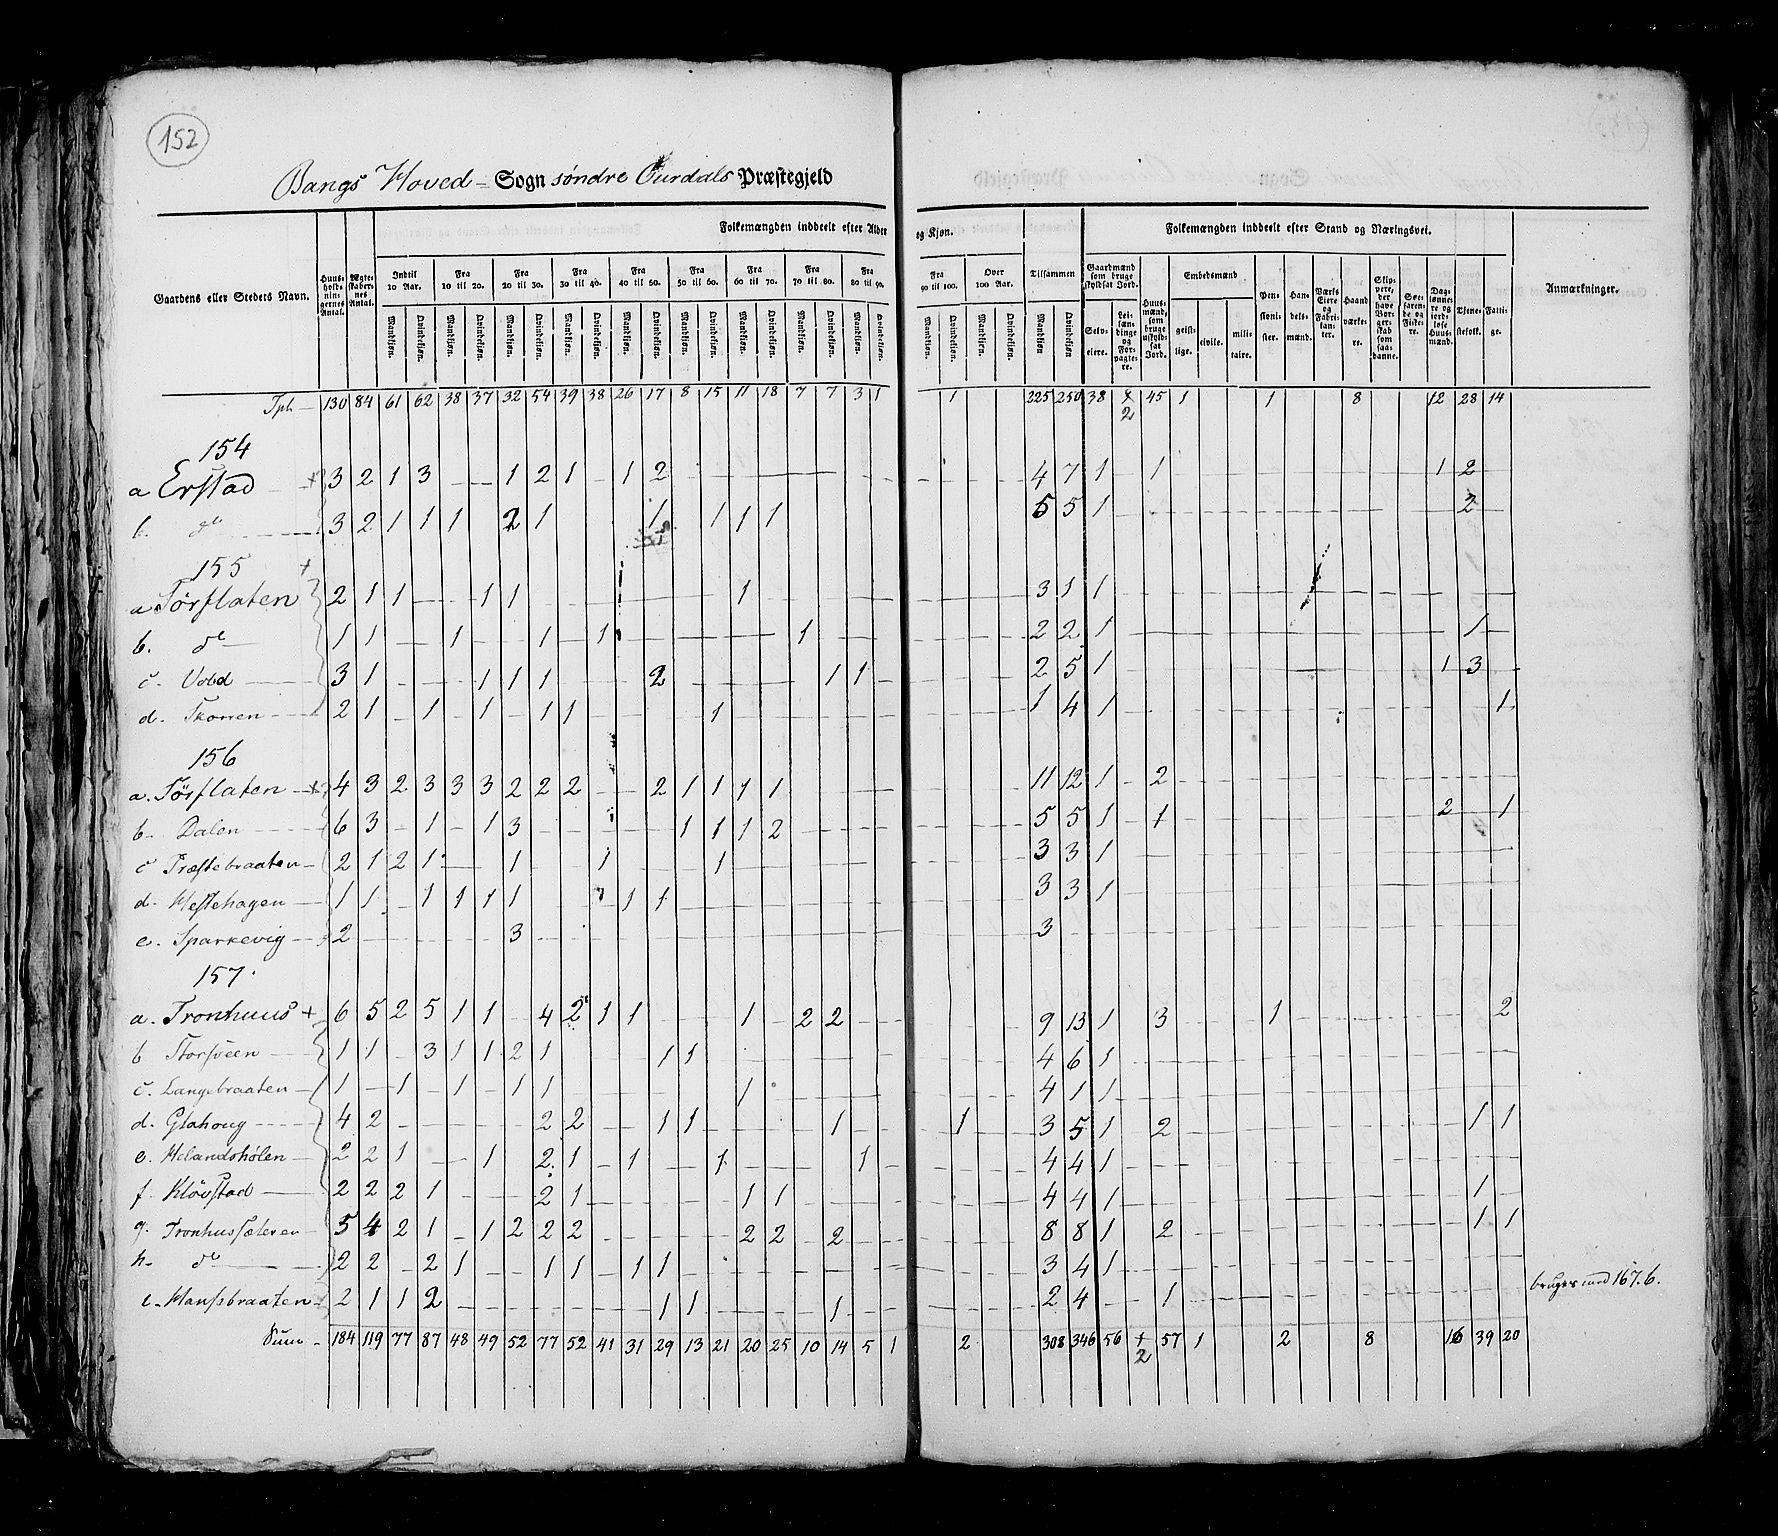 152
Bangs Hoved - Sogn søndre Ourdals Præstegjeld
Gaardens eller Stedets Navn.
Huus-holdningernes Antal.
Ægteskabernes Antal.
Folkemængden inddeelt efter Alder og Kjøn.
Indtil 10 Aar. Fra 10 til 20. Fra 20 til 30. Fra 30 til 40. Fra 40 til 50. Fra 50 til 60. Fra 60 til 70. Fra 70 til 80. Fra 80 til 90. Fra 90 til 100. Over 100 Aar. Tilsammen
Mandkjøn. Qvindekjøn.
Folkemængden inddeelt efter Stand og Næringsvei.
Gaardmænd som bruge skyldsat Jord.
Selveiere.
Leilændinge og Forpagtere.
Huusmænd, som bruge uskyldsat Jord.
Embedsmænd
geistlige. civile. militaire.
Pensionister.
Handelsmænd.
Værks Eiere og Fabrikanter.
Haandværkere.
Skippere, der have Borgerskab som saadanne.
Søefarende og Fiskere.
Daglønnere og jordløse Huusmænd.
Tjenestefolk.
Fattige.
Anmærkninger.
Tph — 130 84 61 62 38 37 32 54 39 38 26 17 8 15 11 18 7 7 3 1 1 225 250 38 + 2 45 1 1 8 12 28 14
154
a Erstad + 3 2 1 3 — — 1 2 1 1 2 4 7 1 1 1 2
b. do 3 2 1 1 1 2 1 1 1 1 1 5 5 1 2
155 +
a Tørflaten 2 1 1 — — 1 1 1 3 1 1
b. do 1 1 — — 1 — — 1 — 1 1 2 2 1 1
c. Vold 3 1 1 1 1 2 1 1 2 5 1 1 3
d. 2 1 — 1 — 1 — 1 1 1 1 4 1 1
156
a. Tørflaten + 4 3 2 3 3 3 2 2 2 — — 2 1 1 1 1 11 12 1 — 2
b. Dalen 6 3 — 1 — 1 3 1 1 1 2 5 5 1 — 1 2 1
c Præstebraaten 2 1 2 1 — — 1 1 1 3 3 1
d. Hestehagen 1 1 — 1 1 1 1 1 1 3 3 1
e. Sparkevig 2 3 3
157.
a. Tronhuus + 6 5 2 5 1 1 — 4 2 1 1 1 — 2 2 9 13 1 3 1 2
b Storsveen 1 1 — 3 1 1 2 1 1 1 4 6 1
c. Langebraaten 1 — 1 — 1 — 1 1 1 4 1 1
d. Glahoug 4 2 2 2 1 1 1 1 3 5 1 2 1 1
e. Helandshølen 2 2 1 — — 1 2 1 — 1 1 1 4 4 1
f. Kløvstad 2 2 2 1 2 1 1 1 4 4 1 1
g. Tronhussæteren 5 4 2 1 — 1 2 2 2 2 2 — 2 8 8 1 2 1 1
h. do 2 2 — 2 1 — — 1 1 — 1 1 3 4 1
i. Hansbraaten 2 1 1 2 1 1 1 2 4 — — 1 bruges med 167. b.
Sum 184 119 77 87 48 49 52 77 52 41 31 29 13 21 20 25 10 14 5 1 2 308 346 56 + 2 57 1 2 8 16 39 20